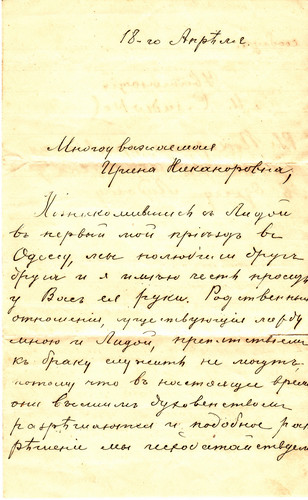 18-го Апрѣля.
Многоуважаемая
Ирина Никаноровна,
Познакомившись съ Лидой
въ первый мой пріѣздъ въ
Одессу, мы полюбили другъ
друга и я имѣю честь просить
у Васъ ея руки. Родственныя
отношенія, существующія между
мною и Лидой, препятствіемъ
къ браку служить не могутъ,
потому что въ настоящее время
они высшимъ духовенствомъ
разрѣшаются и подобное раз-
рѣшеніе мы исходатайствуемъ